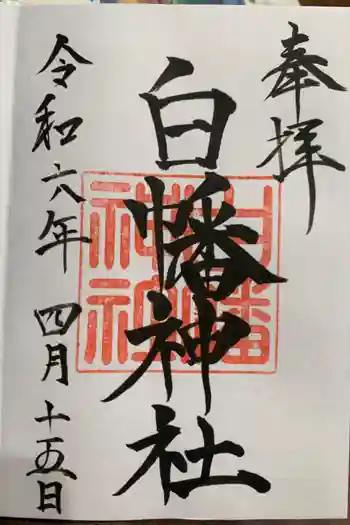 奉拝
白幡神社
令和六年四月十五日
白幡神社